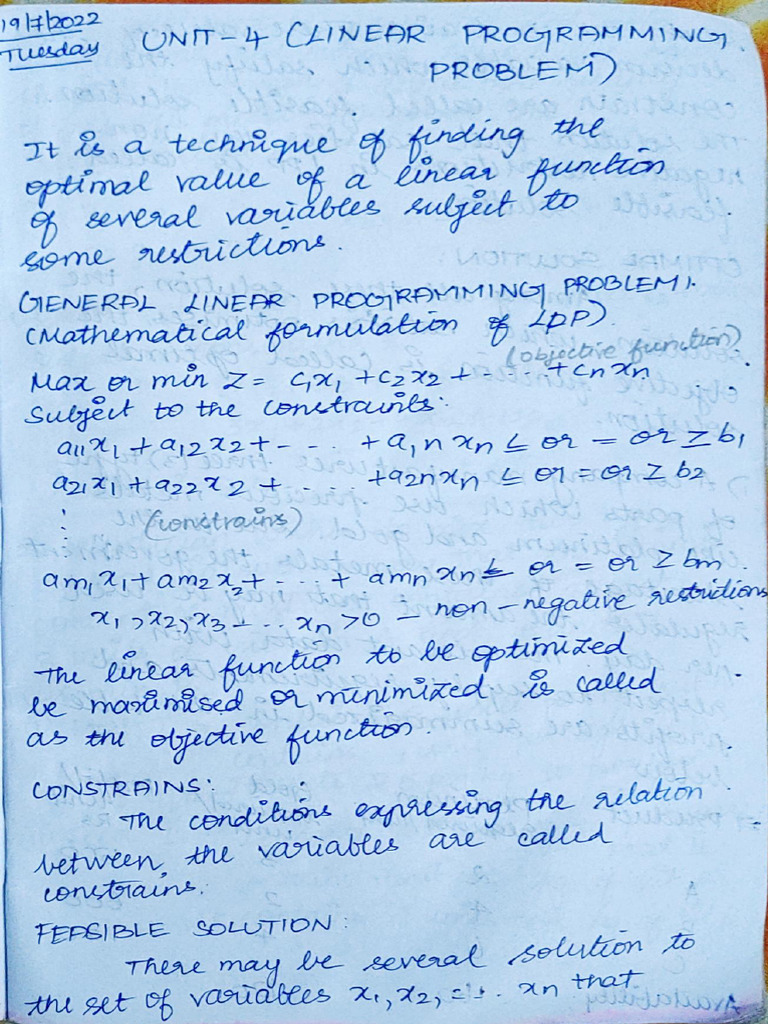 19/7/2022
Tuesday
UNIT-4 (LINEAR PROGRAMMING
PROBLEM)
It is a technique of finding the
optimal value of a linear function
of several variables subject to
some restrictions.
GENERAL LINEAR PROGRAMMING PROBLEM.
(Mathematical formulation of LPP)
(objective function)
Max or min Z = c1x1 + c2x2 + ... + cnxn
Subject to the constraints:
a11x1 + a12x2 + - ... + a1nxn ≤ or = or ≥ b1
a21x1 + a22x2 + ... + a2nxn ≤ or = or ≥ b2
⋮ (constrains)
am1x1 + am2x2 + ... + amnxn ≤ or = or ≥ bm.
x1, x2, x3 - ... xn >0 - non-negative restrictions
The linear function to be optimized
be maximised or minimized is called
as the objective function.
CONSTRAINS:
The conditions expressing the relation
between the variables are called
constrains.
FEASIBLE SOLUTION:
There may be several solution to
the set of variables x1, x2, -... xn that